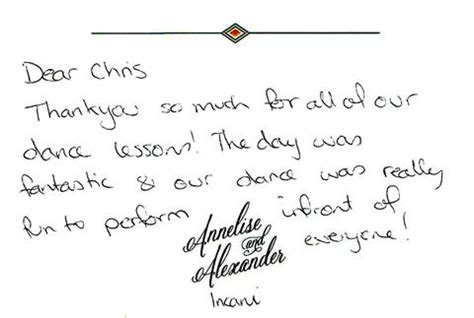 Dear Chris
Thankyou so much for all of our
dance lessons! The day was
fantastic & our dance was really
fun to perform infront of
everyone!
Annelise
and
Alexander